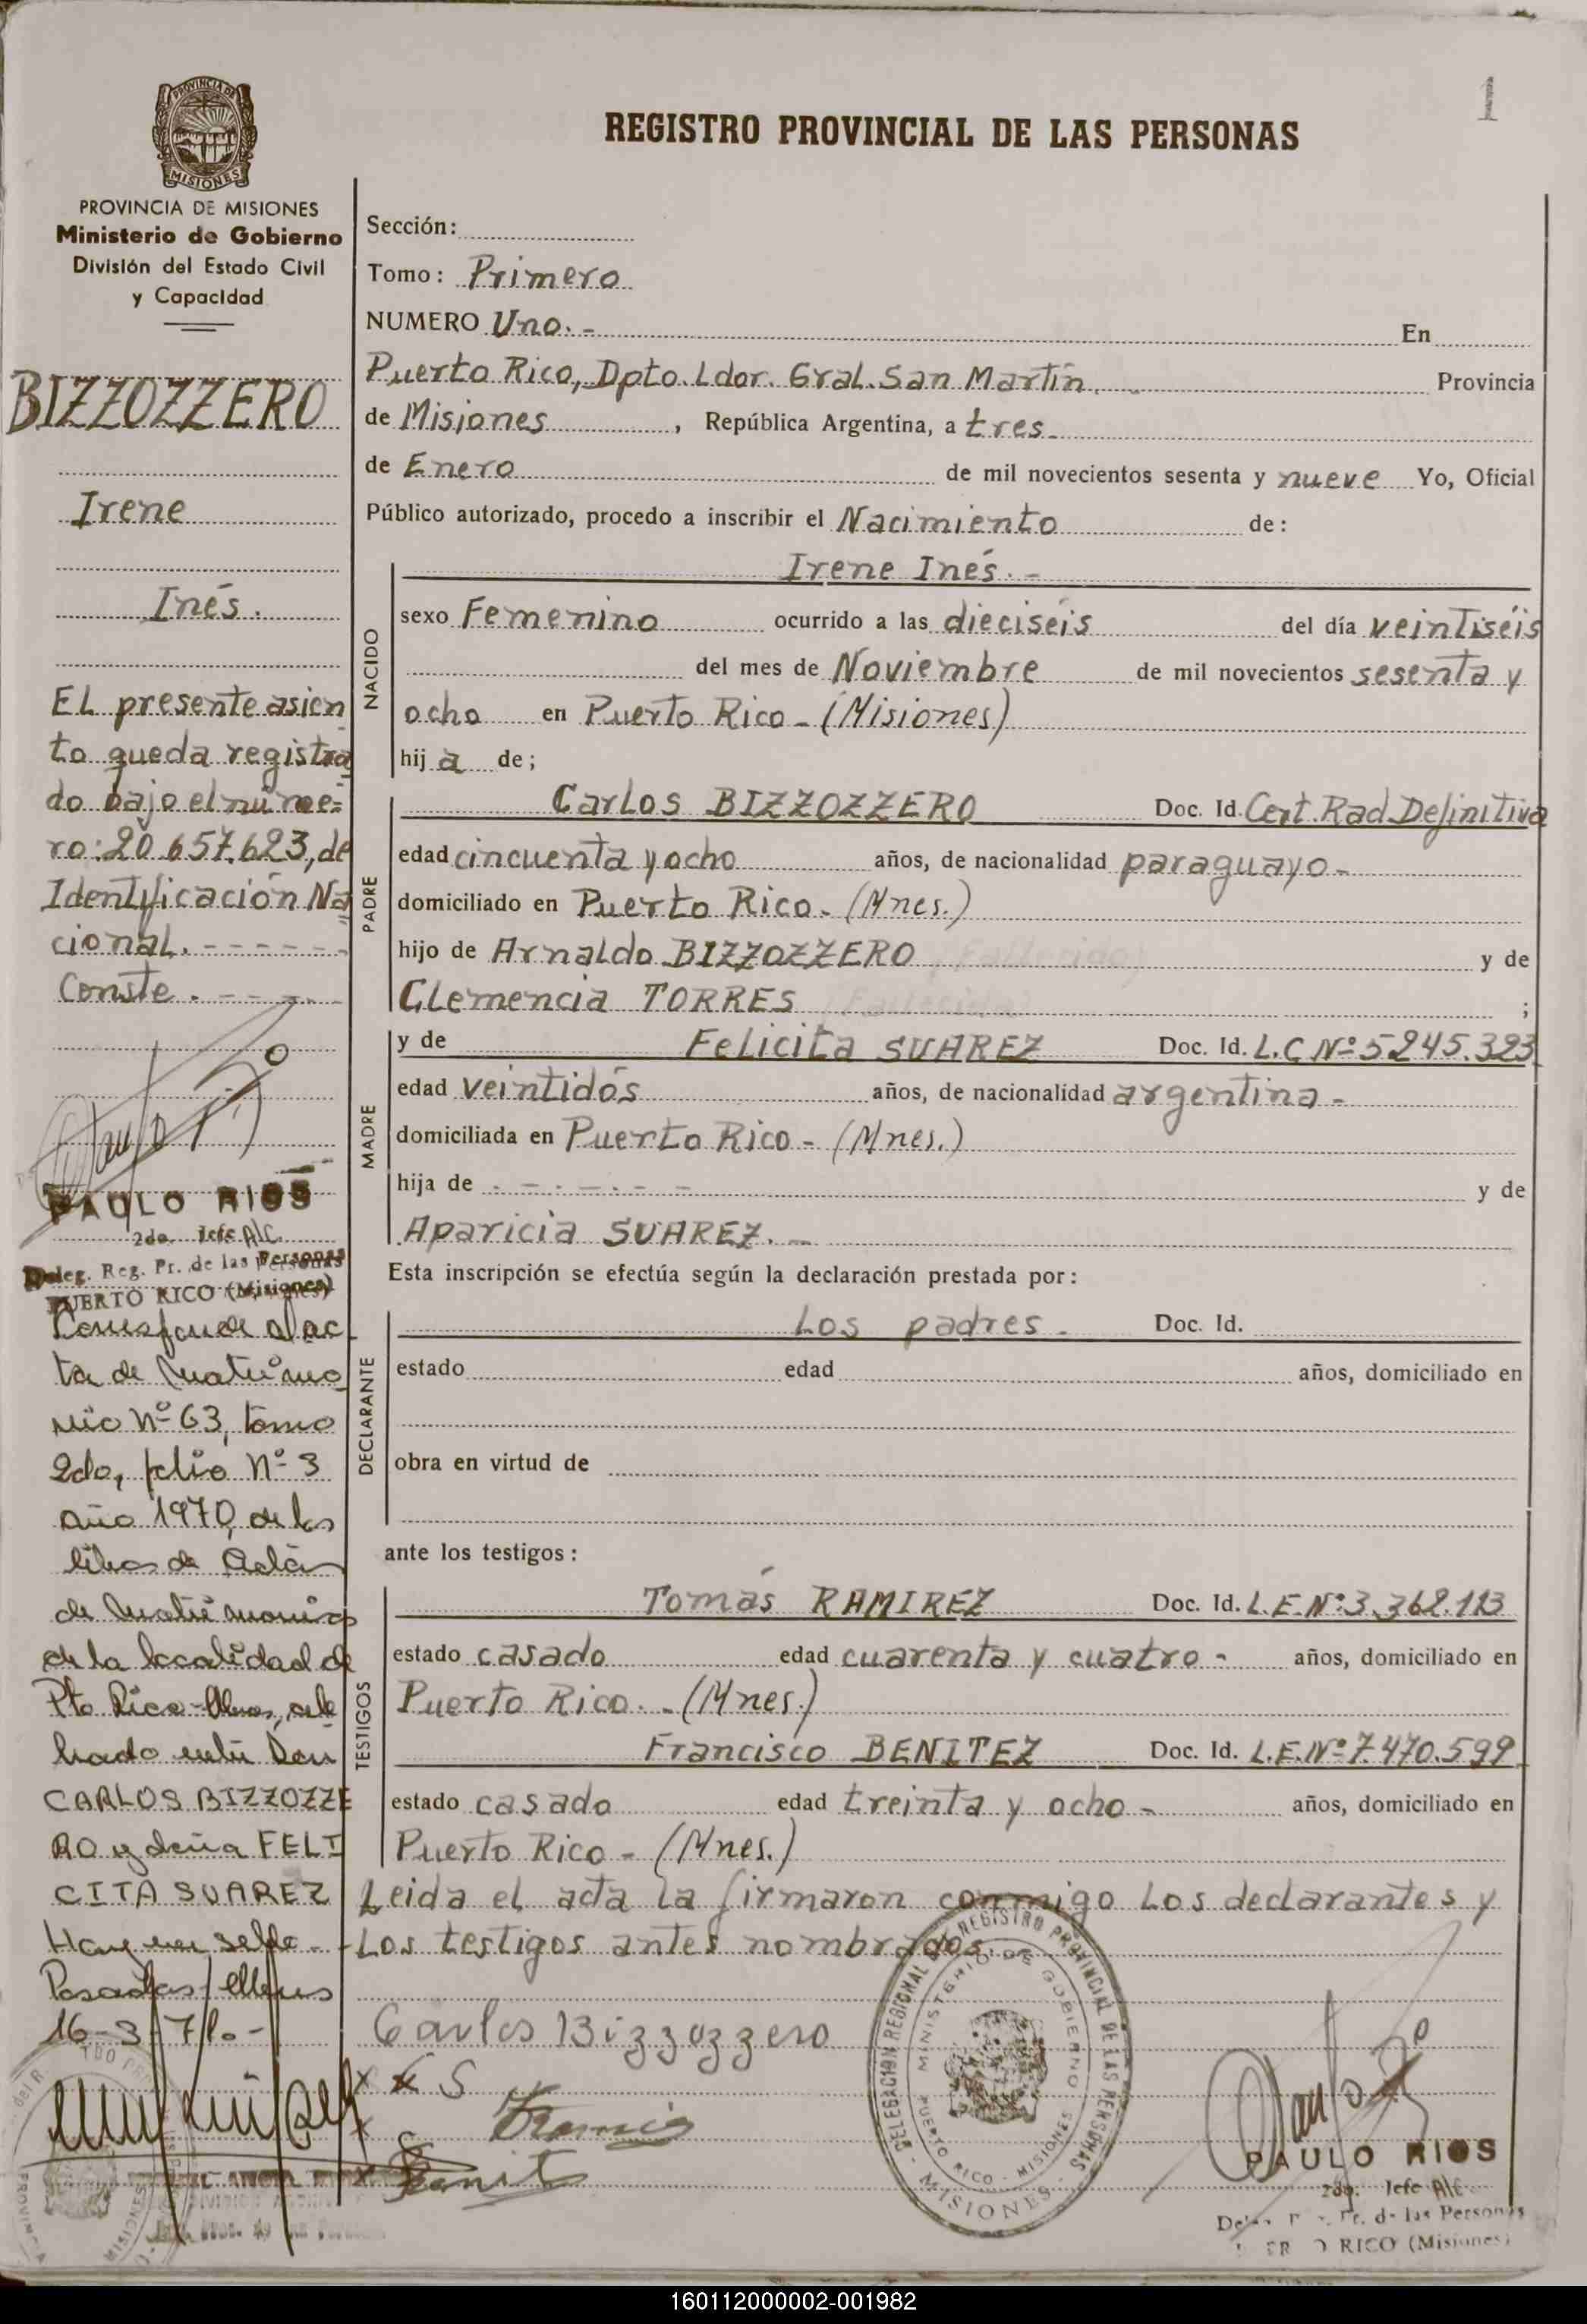 1
PROVINCIA DE
MISIONES
REGISTRO PROVINCIAL DE LAS PERSONAS
PROVINCIA DE MISIONES
Ministerio de Gobierno
División del Estado Civil
y Capacidad
BIZZOZZERO
Irene
Inés.
EL presente asien
to queda registra
do bajo el núme=
ro: 20.657.623, de
Identificación Na
cional. - - - - - -
Conste. - - - -
PAULO RIOS
2do. Jefe A/C.
Deleg. Reg. Pr. de las Personas
PUERTO RICO (Misiones)
Corresponde al ac
ta de Matrimo
nio Nº 63, tomo
2do, folio Nº 3
año 1970, de los
libros de Actas
de Matrimonios
de la localidad de
Pto Rico - Mnes, cele
brado entre Don
CARLOS BIZZOZZE
RO y doña FELI
CITA SUAREZ
Hay un sello -
Posadas, Mnes
16-3-71.-
Sección:
Tomo: Primero
NUMERO Uno. - En
Puerto Rico, Dpto. Ldor. Gral. San Martín. - Provincia
de Misiones , República Argentina, a tres
de Enero de mil novecientos sesenta y nueve Yo, Oficial
Público autorizado, procedo a inscribir el Nacimiento de:
NACIDO
Irene Inés. -
sexo Femenino ocurrido a las dieciséis del día veintiséis
del mes de Noviembre de mil novecientos sesenta y
ocho en Puerto Rico - (Misiones)
hij a de;
PADRE
Carlos BIZZOZZERO Doc. Id. Cert. Rad. Definitiva
edad cincuenta y ocho años, de nacionalidad paraguayo -
domiciliado en Puerto Rico - (Mnes.)
hijo de Arnaldo BIZZOZZERO (Fallecido) y de
Clemencia TORRES (Fallecida) ;
MADRE
y de Felicita SUAREZ Doc. Id. L.C Nº 5245.323
edad veintidós años, de nacionalidad argentina -
domiciliada en Puerto Rico - (Mnes.)
hija de - - - - - - y de
Aparicia SUAREZ. -
Esta inscripción se efectúa según la declaración prestada por:
DECLARANTE
Los padres - Doc. Id.
estado edad años, domiciliado en
obra en virtud de
ante los testigos:
TESTIGOS
Tomás RAMIREZ Doc. Id. L.E.Nº 3.362.113
estado casado edad cuarenta y cuatro - años, domiciliado en
Puerto Rico. - (Mnes.)
Francisco BENITEZ Doc. Id. L.E.Nº 7.470.599
estado casado edad treinta y ocho - años, domiciliado en
Puerto Rico - (Mnes.)
Leida el acta la firmaron conmigo Los declarantes y
Los testigos antes nombrados.
Carlos Bizzozzero
x F S
x
x Benit
DELEGACION REGIONAL DEL REGISTRO PROVINCIAL DE LAS PERSONAS
MINISTERIO DE GOBIERNO
PUERTO RICO - MISIONES
- MISIONES -
PAULO RIOS
2do. Jefe A/C
Pr. de las Personas
RICO (Misiones)
160112000002-001982